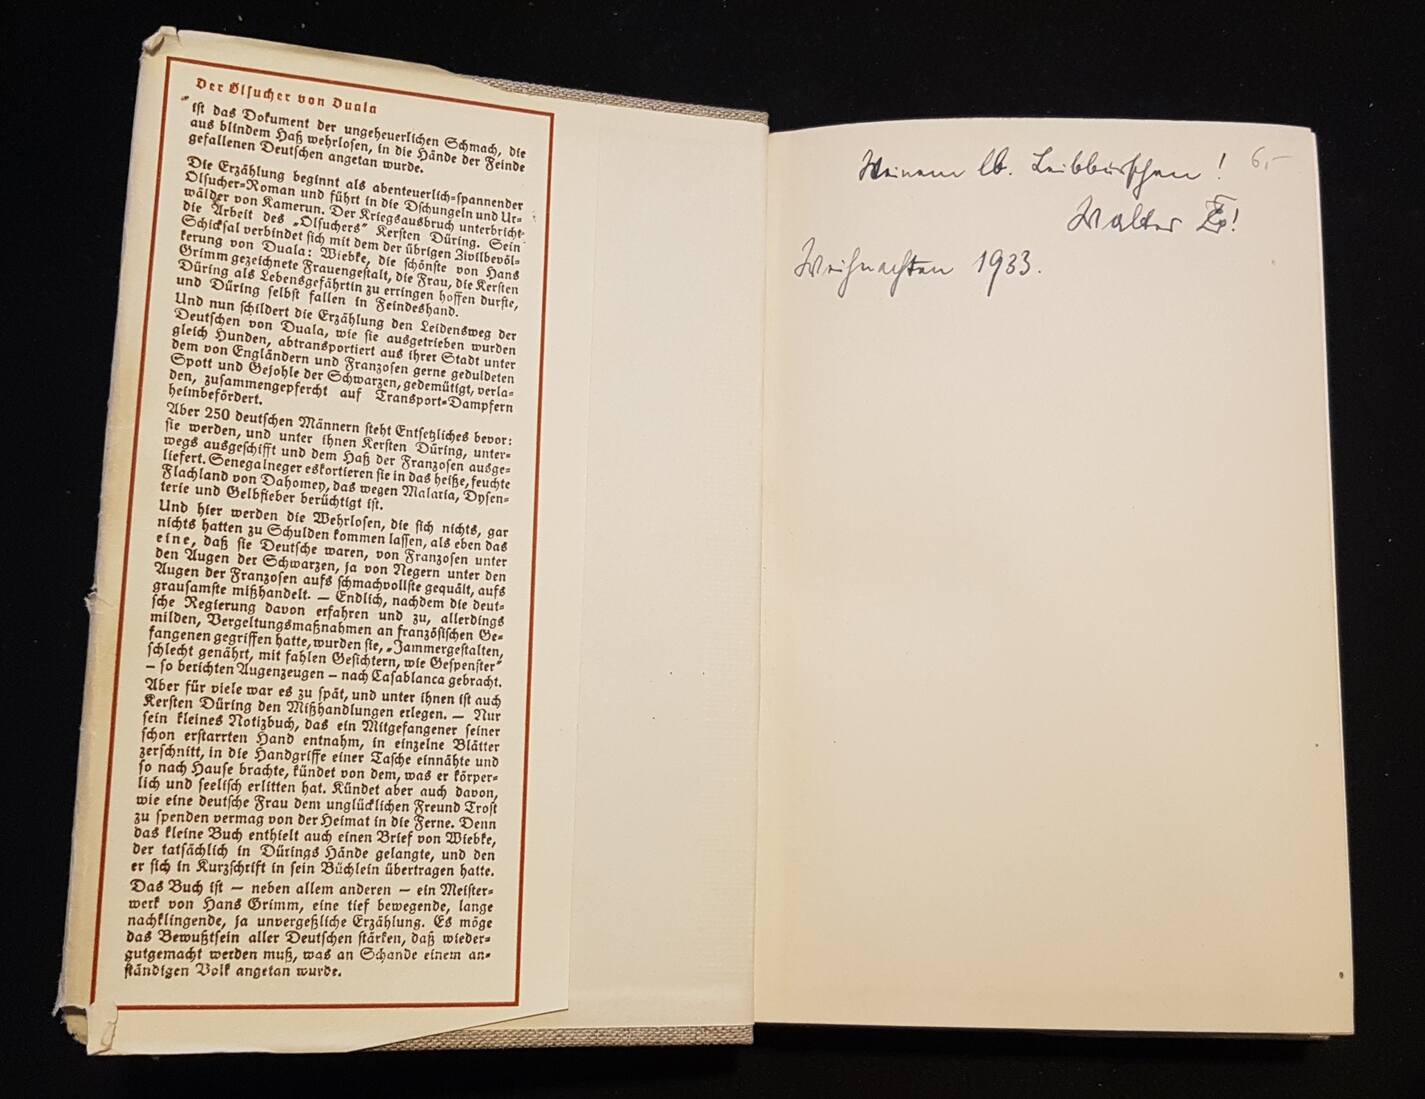 Der Ölsucher von Duala
ist das Dokument der ungeheuerlichen Schmach, die
aus blindem Haß wehrlosen, in die Hände der Feinde
gefallenen Deutschen angetan wurde.
Die Erzählung beginnt als abenteuerlich-spannender
Ölsucher-Roman und führt in die Dschungeln und Ur-
wälder von Kamerun. Der Kriegsausbruch unterbricht
die Arbeit des „Ölsuchers“ Kersten Düring. Sein
Schicksal verbindet sich mit dem der übrigen Zivilbevöl-
kerung von Duala: Wiebke, die schönste von Hans
Grimm gezeichnete Frauengestalt, die Frau, die Kersten
Düring als Lebensgefährtin zu erringen hoffen durfte,
und Düring selbst fallen in Feindeshand.
Und nun schildert die Erzählung den Leidensweg der
Deutschen von Duala, wie sie ausgetrieben wurden
gleich Hunden, abtransportiert aus ihrer Stadt unter
dem von Engländern und Franzosen gerne geduldeten
Spott und Gejohle der Schwarzen, gedemütigt, verla-
den, zusammengepfercht auf Transport-Dampfern
heimbefördert.
Aber 250 deutschen Männern steht Entsetzliches bevor:
sie werden, und unter ihnen Kersten Düring, unter-
wegs ausgeschifft und dem Haß der Franzosen ausge-
liefert. Senegalneger eskortieren sie in das heiße, feuchte
Flachland von Dahomey, das wegen Malaria, Dysen-
terie und Gelbfieber berüchtigt ist.
Und hier werden die Wehrlosen, die sich nichts, gar
nichts hatten zu Schulden kommen lassen, als eben das
eine, daß sie Deutsche waren, von Franzosen unter
den Augen der Schwarzen, ja von Negern unter den
Augen der Franzosen aufs schmachvollste gequält, aufs
grausamste mißhandelt. — Endlich, nachdem die deut-
sche Regierung davon erfahren und zu, allerdings
milden, Vergeltungsmaßnahmen an französischen Ge-
fangenen gegriffen hatte, wurden sie, „Jammergestalten,
schlecht genährt, mit fahlen Gesichtern, wie Gespenster“
— so berichten Augenzeugen — nach Casablanca gebracht.
Aber für viele war es zu spät, und unter ihnen ist auch
Kersten Düring den Mißhandlungen erlegen. — Nur
sein kleines Notizbuch, das ein Mitgefangener seiner
schon erstarrten Hand entnahm, in einzelne Blätter
zerschnitt, in die Handgriffe einer Tasche einnähte und
so nach Hause brachte, kündet von dem, was er körper-
lich und seelisch erlitten hat. Kündet aber auch davon,
wie eine deutsche Frau dem unglücklichen Freund Trost
zu spenden vermag von der Heimat in die Ferne. Denn
das kleine Buch enthielt auch einen Brief von Wiebke,
der tatsächlich in Dürings Hände gelangte, und den
er sich in Kurzschrift in sein Büchlein übertragen hatte.
Das Buch ist — neben allem anderen — ein Meister-
werk von Hans Grimm, eine tief bewegende, lange
nachklingende, ja unvergeßliche Erzählung. Es möge
das Bewußtsein aller Deutschen stärken, daß wieder-
gutgemacht werden muß, was an Schande einem an-
ständigen Volk angetan wurde.
Meinem lb. Leibburschen! 6,-
Walter
Weihnachten 1933.